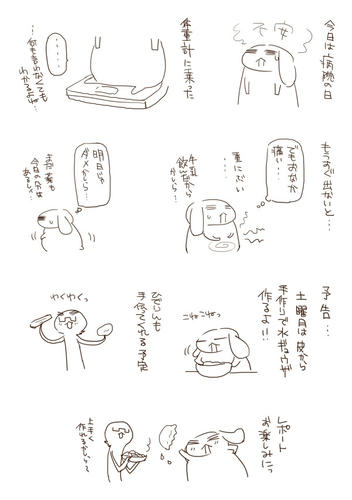 今日は病院の日
不安
体重計に乗った
・・・・・
…何も言わなくても
わかるよね…
もうすぐ出ないと…
でもおなか
痛い…
重にぶい
…
牛乳
飲んだから
かしら…
明日じゃ
ダメかしら…
まだ薬も
今日の分は
あるし…
予告…
土曜日は皮から
手作りで水ギョウザ
作るよ!!
こねこねっ
ひでじんも
手伝ってくれる予定
わくわくっ
レポート
お楽しみにっ
上手く
作れるかしら?